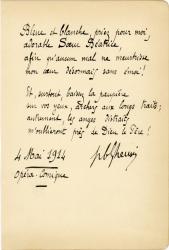 Bleue et blanche, priez pour moi,
adorable Sœur Béatrice,
afin qu'aucun mal ne meurtrisse
mon cœur désormais sans émoi !
Et, surtout, baissez la paupière
sur vos yeux, archers aux longs traits ;
autrement, les anges distraits
m'oublieront près de Dieu le Père !
4 Mai 1914
Opéra-Comique